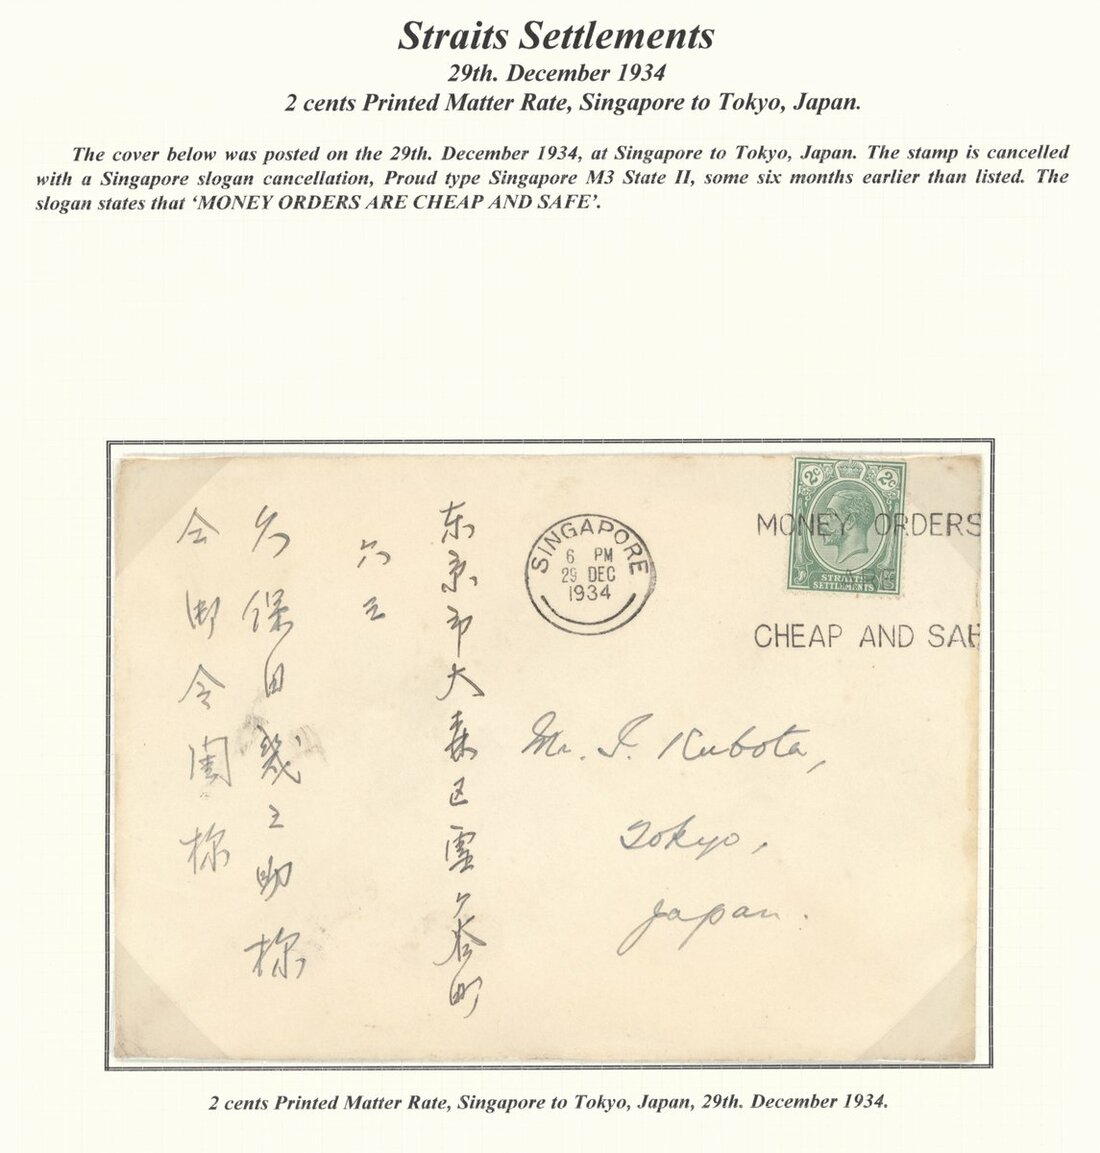 Straits Settlements
29th. December 1934
2 cents Printed Matter Rate, Singapore to Tokyo, Japan.
The cover below was posted on the 29th. December 1934, at Singapore to Tokyo, Japan. The stamp is cancelled
with a Singapore slogan cancellation, Proud type Singapore M3 State II, some six months earlier than listed. The
slogan states that ‘MONEY ORDERS ARE CHEAP AND SAFE’.
东京市大森区雪ヶ谷町
六三
久保田幾之助様
仝御令閨様
SINGAPORE
6 PM
29 DEC
1934
2c 2c
STRAITS
SETTLEMENTS
MONEY ORDERS
ARE
CHEAP AND SAF
Mr. I. Kubota,
Tokyo,
Japan.
2 cents Printed Matter Rate, Singapore to Tokyo, Japan, 29th. December 1934.